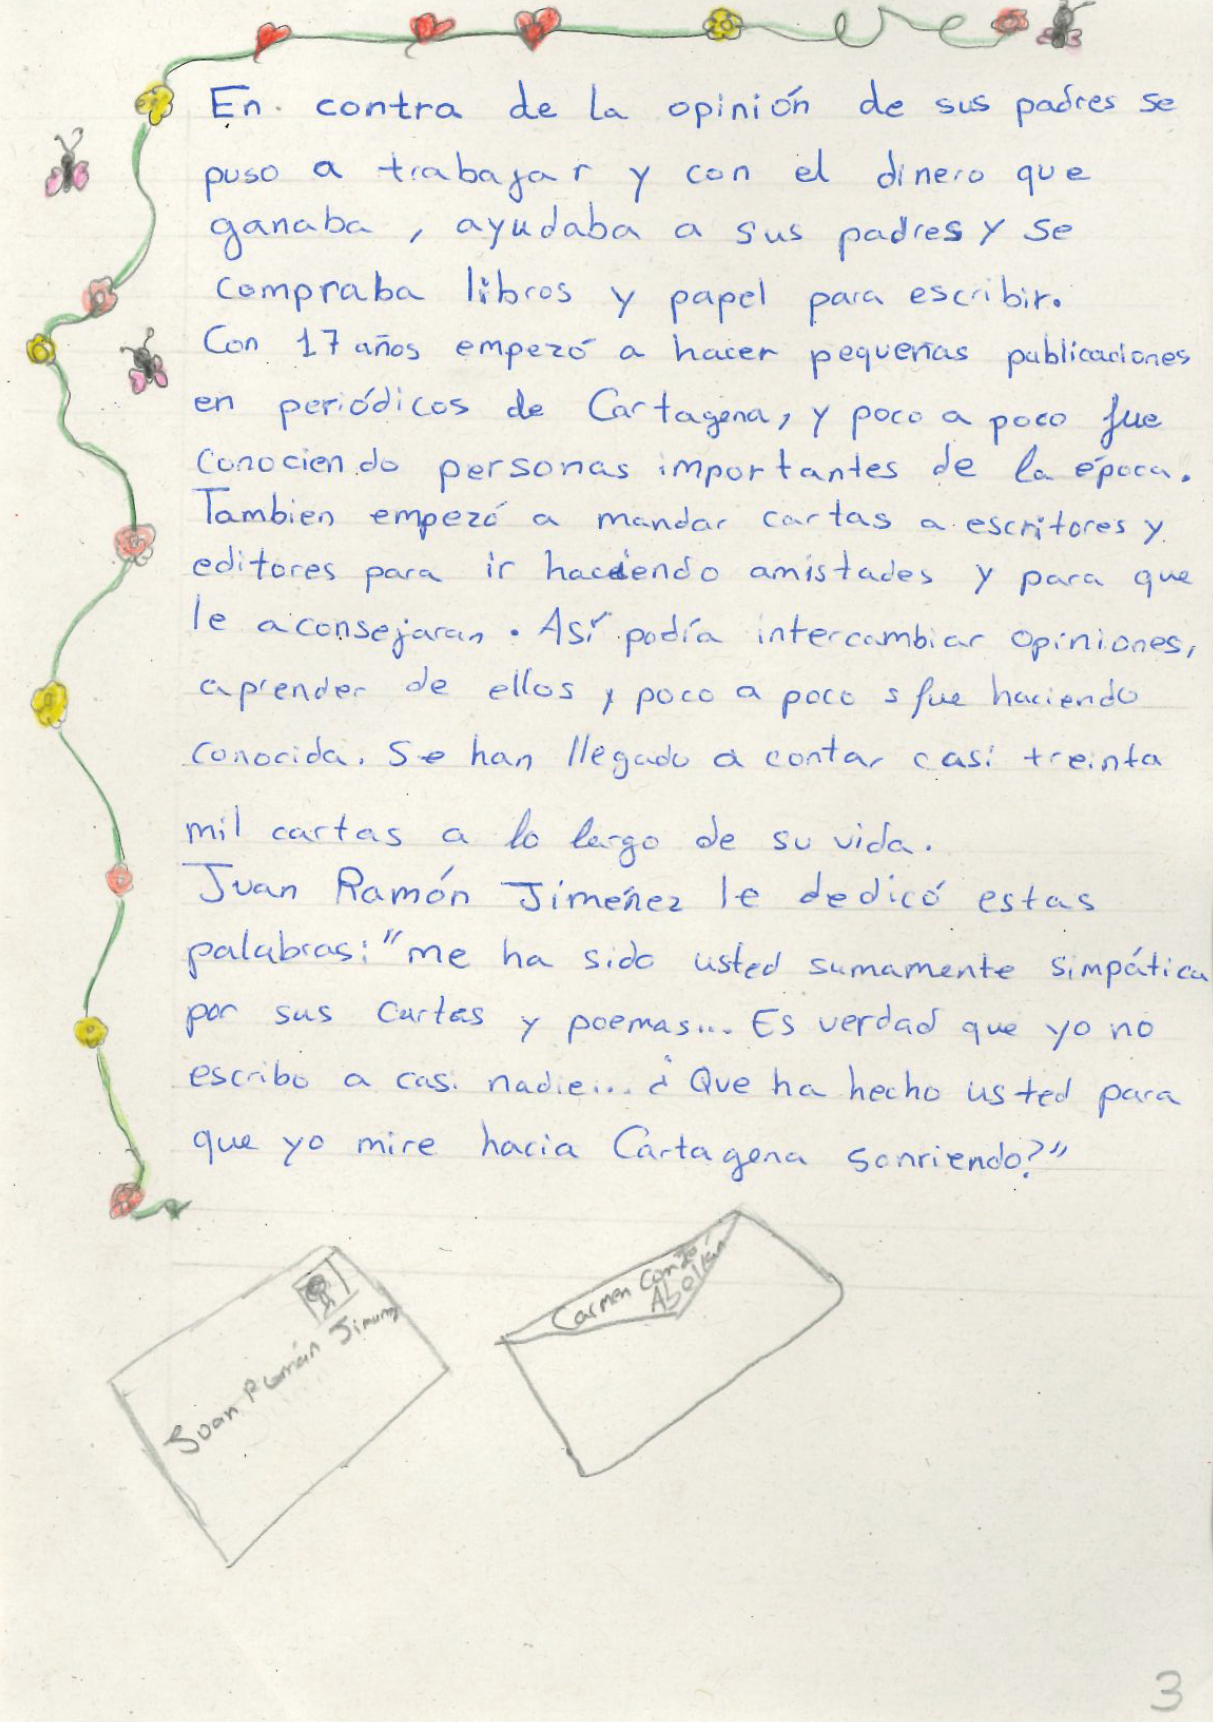 En contra de la opinión de sus padres se
puso a trabajar y con el dinero que
ganaba, ayudaba a sus padres y se
compraba libros y papel para escribir.
Con 17 años empezó a hacer pequeñas publicaciones
en periódicos de Cartagena, y poco a poco fue
conociendo personas importantes de la época.
Tambien empezó a mandar cartas a escritores y
editores para ir haciendo amistades y para que
le aconsejaran. Así podía intercambiar opiniones,
aprender de ellos y poco a poco s fue haciendo
conocida. Se han llegado a contar casi treinta
mil cartas a lo largo de su vida.
Juan Ramón Jiménez le dedicó estas
palabras: "me ha sido usted sumamente simpática
por sus cartas y poemas... Es verdad que yo no
escribo a casi nadie... ¿Que ha hecho usted para
que yo mire hacia Cartagena sonriendo?"
Juan Ramón Jimenez
Carmen Conde
Abellán
3